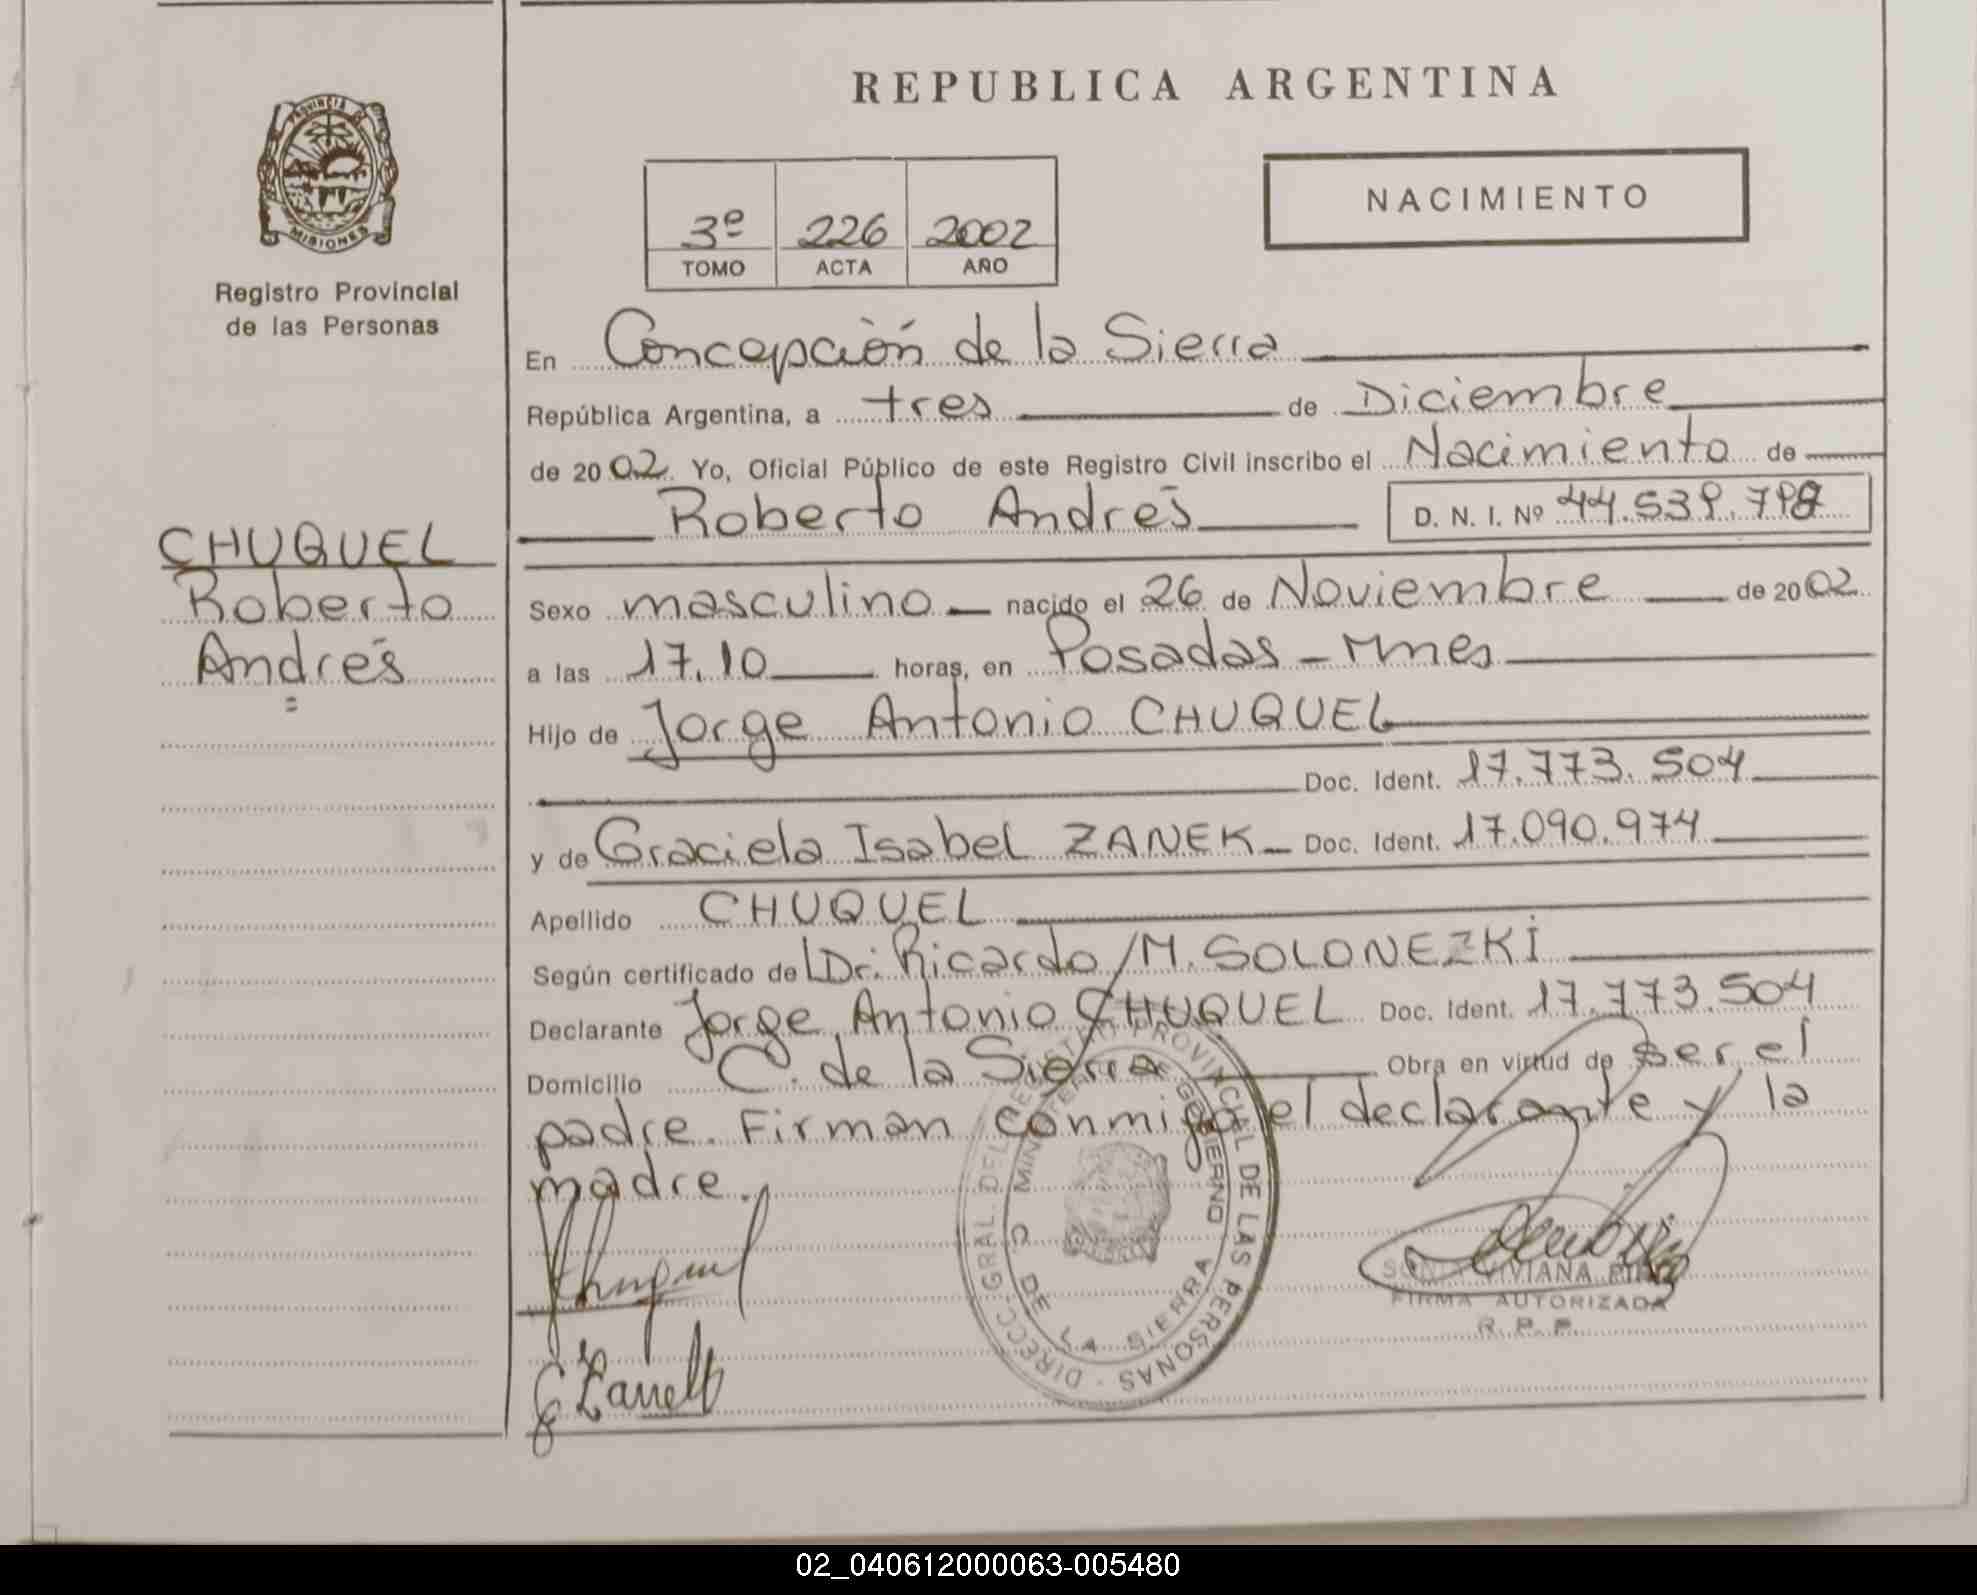 REPUBLICA ARGENTINA
PROVINCIA DE
MISIONES
Registro Provincial
de las Personas
NACIMIENTO
3º 226 2002
TOMO ACTA AÑO
En Concepción de la Sierra
República Argentina, a tres de Diciembre
de 2002. Yo, Oficial Público de este Registro Civil inscribo el Nacimiento de
Roberto Andrés D. N. I. Nº 44.539.798
CHUQUEL
Roberto
Andrés
Sexo masculino nacido el 26 de Noviembre de 2002
a las 17,10 horas, en Posadas - Mnes
Hijo de Jorge Antonio CHUQUEL
Doc. Ident. 17.773.504
y de Graciela Isabel ZANEK Doc. Ident. 17.090.974
Apellido CHUQUEL
Según certificado de Dr. Ricardo M. SOLONEZKI
Declarante Jorge Antonio CHUQUEL Doc. Ident. 17.773.504
Domicilio C. de la Sierra Obra en virtud de ser el
padre. Firman conmigo el declarante y la
madre.
DIRECC. GRAL. DEL REGISTRO PROVINCIAL DE LAS PERSONAS
MINISTERIO DE GOBIERNO
C. DE LA SIERRA
SONIA VIVIANA
FIRMA AUTORIZADA
R. P. P.
02_040612000063-005480